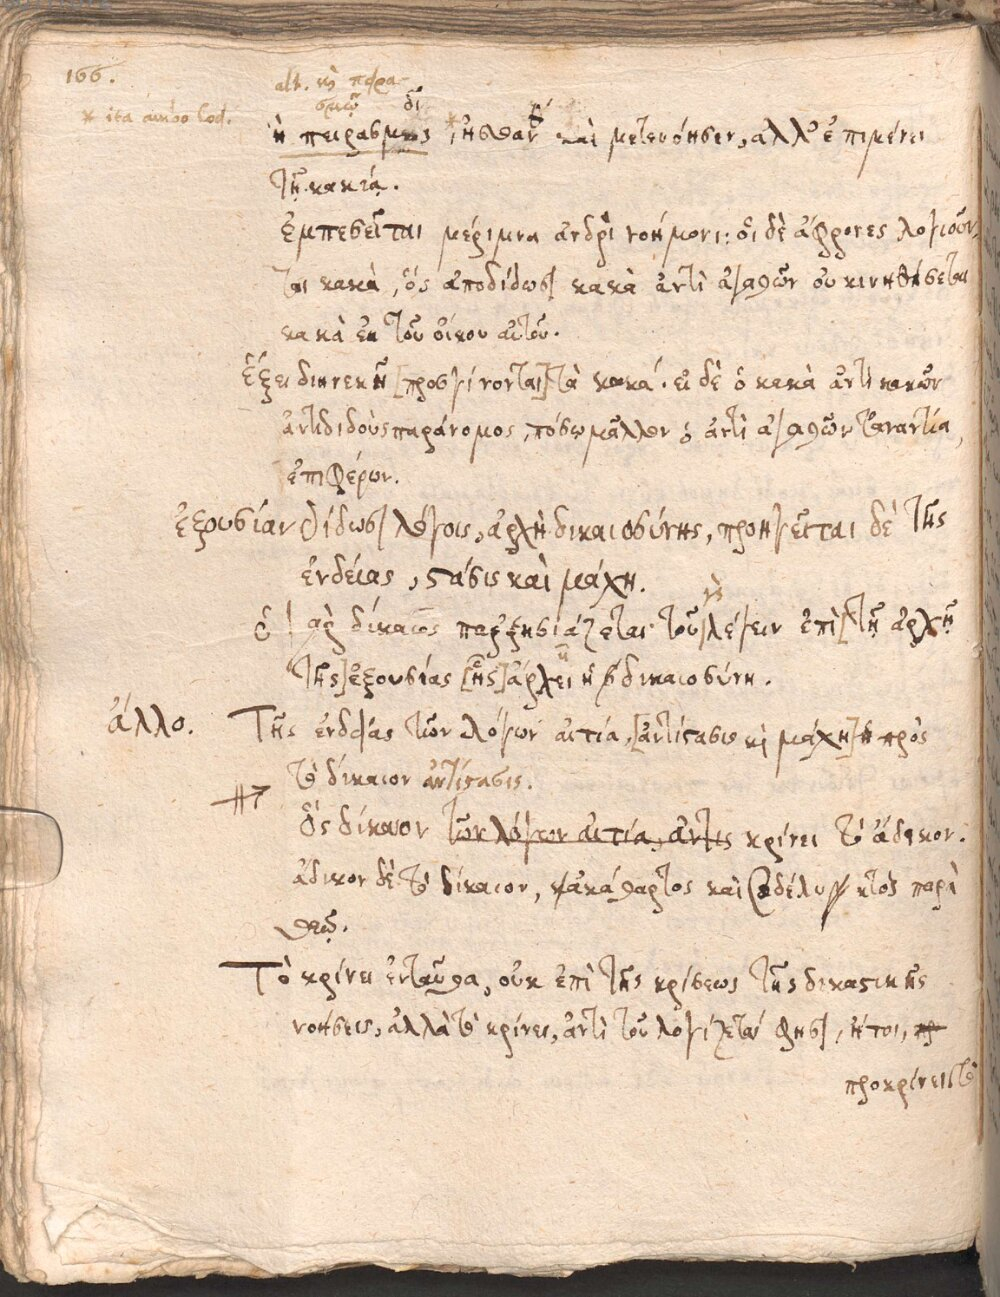 166.
alt. κỳ πειρα-
σμῷ δι
* ita ambo Cod.
ἢ πειρασμὸς, ᾔσθαν καὶ μετενόησεν, ἀλλ' ἐπιμένει
τῇ κακίᾳ.
Ἐμπεσεῖται μέριμνα ἀνδρὶ νοήμονι: οἱ δὲ ἄφρονες λογιοῦν-
ται κακὰ, ὃς ἀποδίδωσι κακὰ ἀντὶ ἀγαθῶν οὐ κινηθήσεται
κακὰ ἐκ τοῦ οἴκου αὐτοῦ.
Ἕξει διηνεκῆ [προσγίνονται] τὰ κακά. εἰ δὲ ὁ κακὰ ἀντὶ κακῶν
ἀντιδιδοὺς παράνομος, πόσῳ μᾶλλον ὁ ἀντὶ ἀγαθῶν τἀναντία
ἐπιφέρων.
Ἐξουσίαν δίδωσι λόγοις, ἀρχὴ δικαιοσύνης, προηγεῖται δὲ τῆς
ἐνδείας, στάσις καὶ μάχη.
ὁ γὰρ δίκαιος παρρησιάζεται τοῦ λέγειν ἐπὶ [τῇ ἀρχῇ
τῆς] ἐξουσίας [ἧς] ἄρχει ἡ δικαιοσύνη.
ἄλλο. Τῆς ἐνδείας τῶν λόγων αἰτία, [ἀντίστασις κỳ μάχη] ἡ πρὸς
τὸ δίκαιον ἀντίστασις.
Ὃς δίκαιον τῶν λόγων αἰτία, ἀντις κρίνει τὸ ἄδικον.
ἄδικον δὲ τὸ δίκαιον, ἀκάθαρτος καὶ βδελυκτὸς παρὰ
θεῷ.
Τὸ κρίνει ἐνταῦθα, οὐκ ἐπὶ τῆς κρίσεως τῆς δικαστικῆς
νοήσεις, ἀλλὰ τὸ κρίνει, ἀντὶ τοῦ λογίζεται φησὶ, ἤτοι,
προκρίνει τὸ